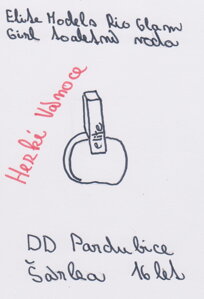 Elite Models Rio Glam
Girl toaletní voda
Hezké Vánoce
elite
DD Pardubice
Šárka 16 let